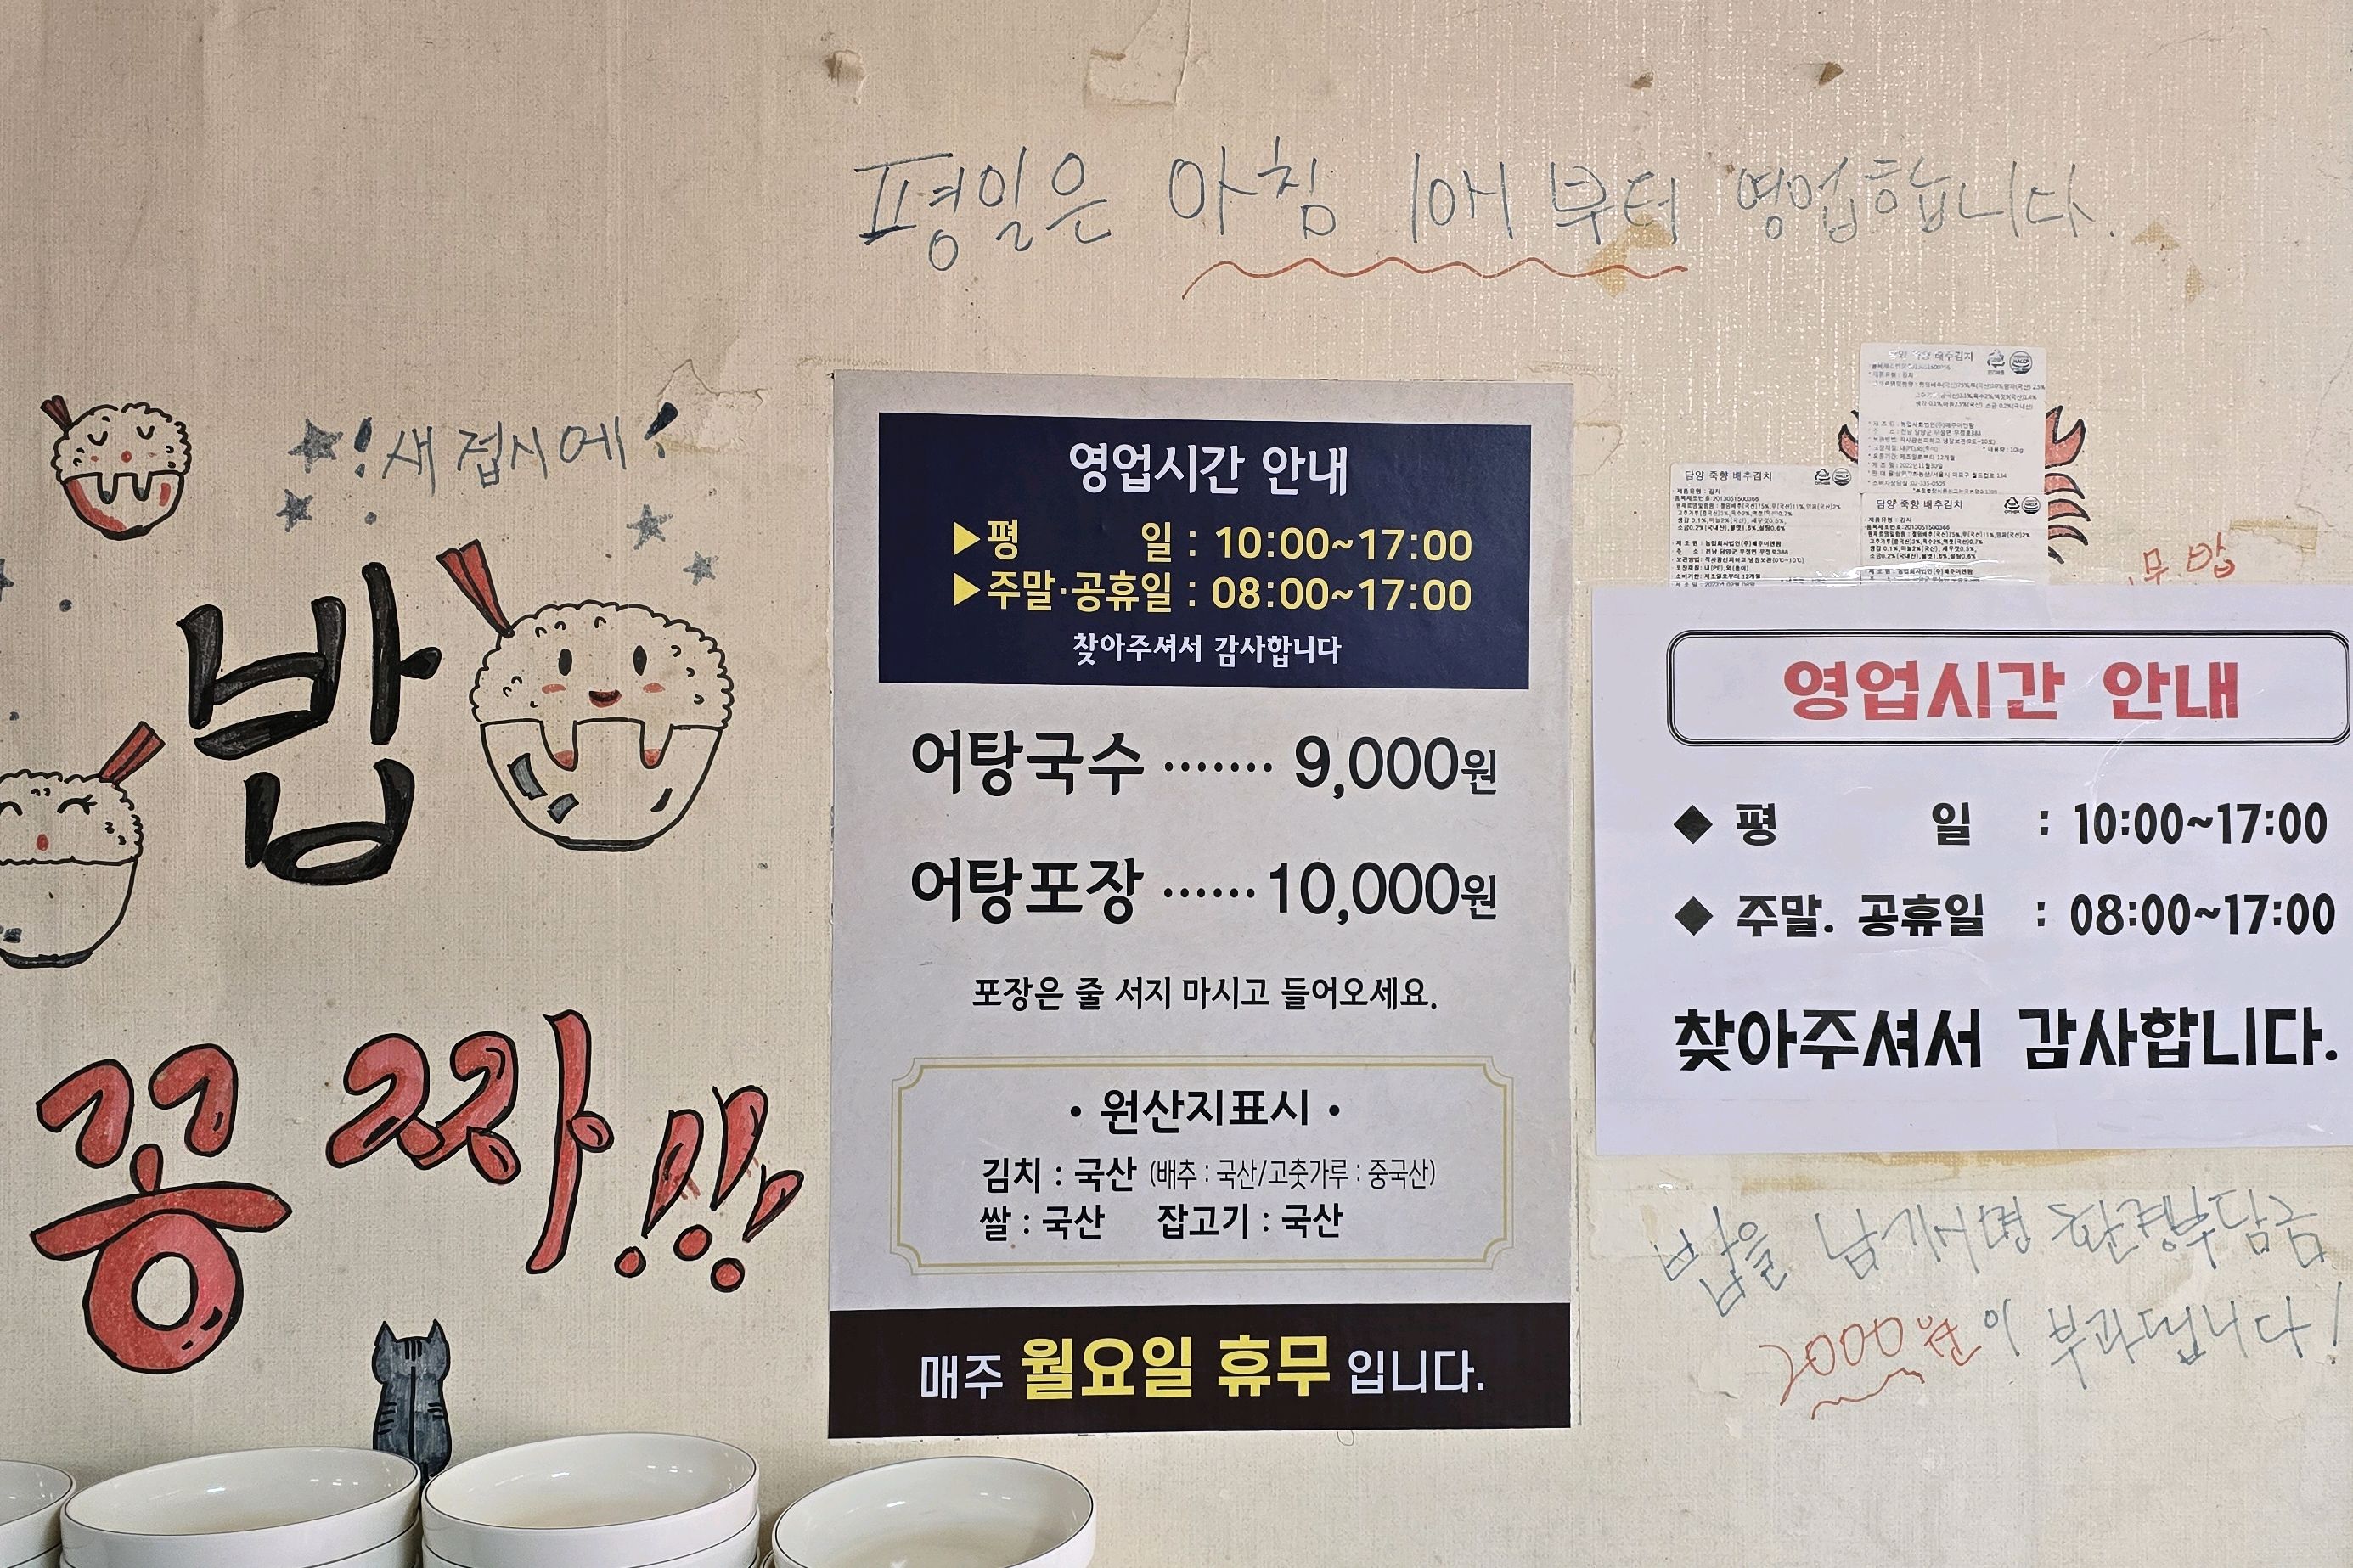 평일은 아침 10시 부터 영업합니다.
! 새 접시에 !
밥
꽁 짜!!!
영업시간 안내
▶평 일 : 10:00~17:00
▶주말·공휴일 : 08:00~17:00
찾아주셔서 감사합니다
어탕국수 ······· 9,000원
어탕포장 ······ 10,000원
포장은 줄 서지 마시고 들어오세요.
• 원산지표시 •
김치 : 국산 (배추 : 국산/고춧가루 : 중국산)
쌀 : 국산 잡고기 : 국산
매주 월요일 휴무 입니다.
배추김치
담양 죽향 배추김치
담양 죽향 배추김치
영업시간 안내
◆ 평 일 : 10:00~17:00
◆ 주말. 공휴일 : 08:00~17:00
찾아주셔서 감사합니다.
밥을 남기시면 환경부담금
2000원이 부과됩니다!